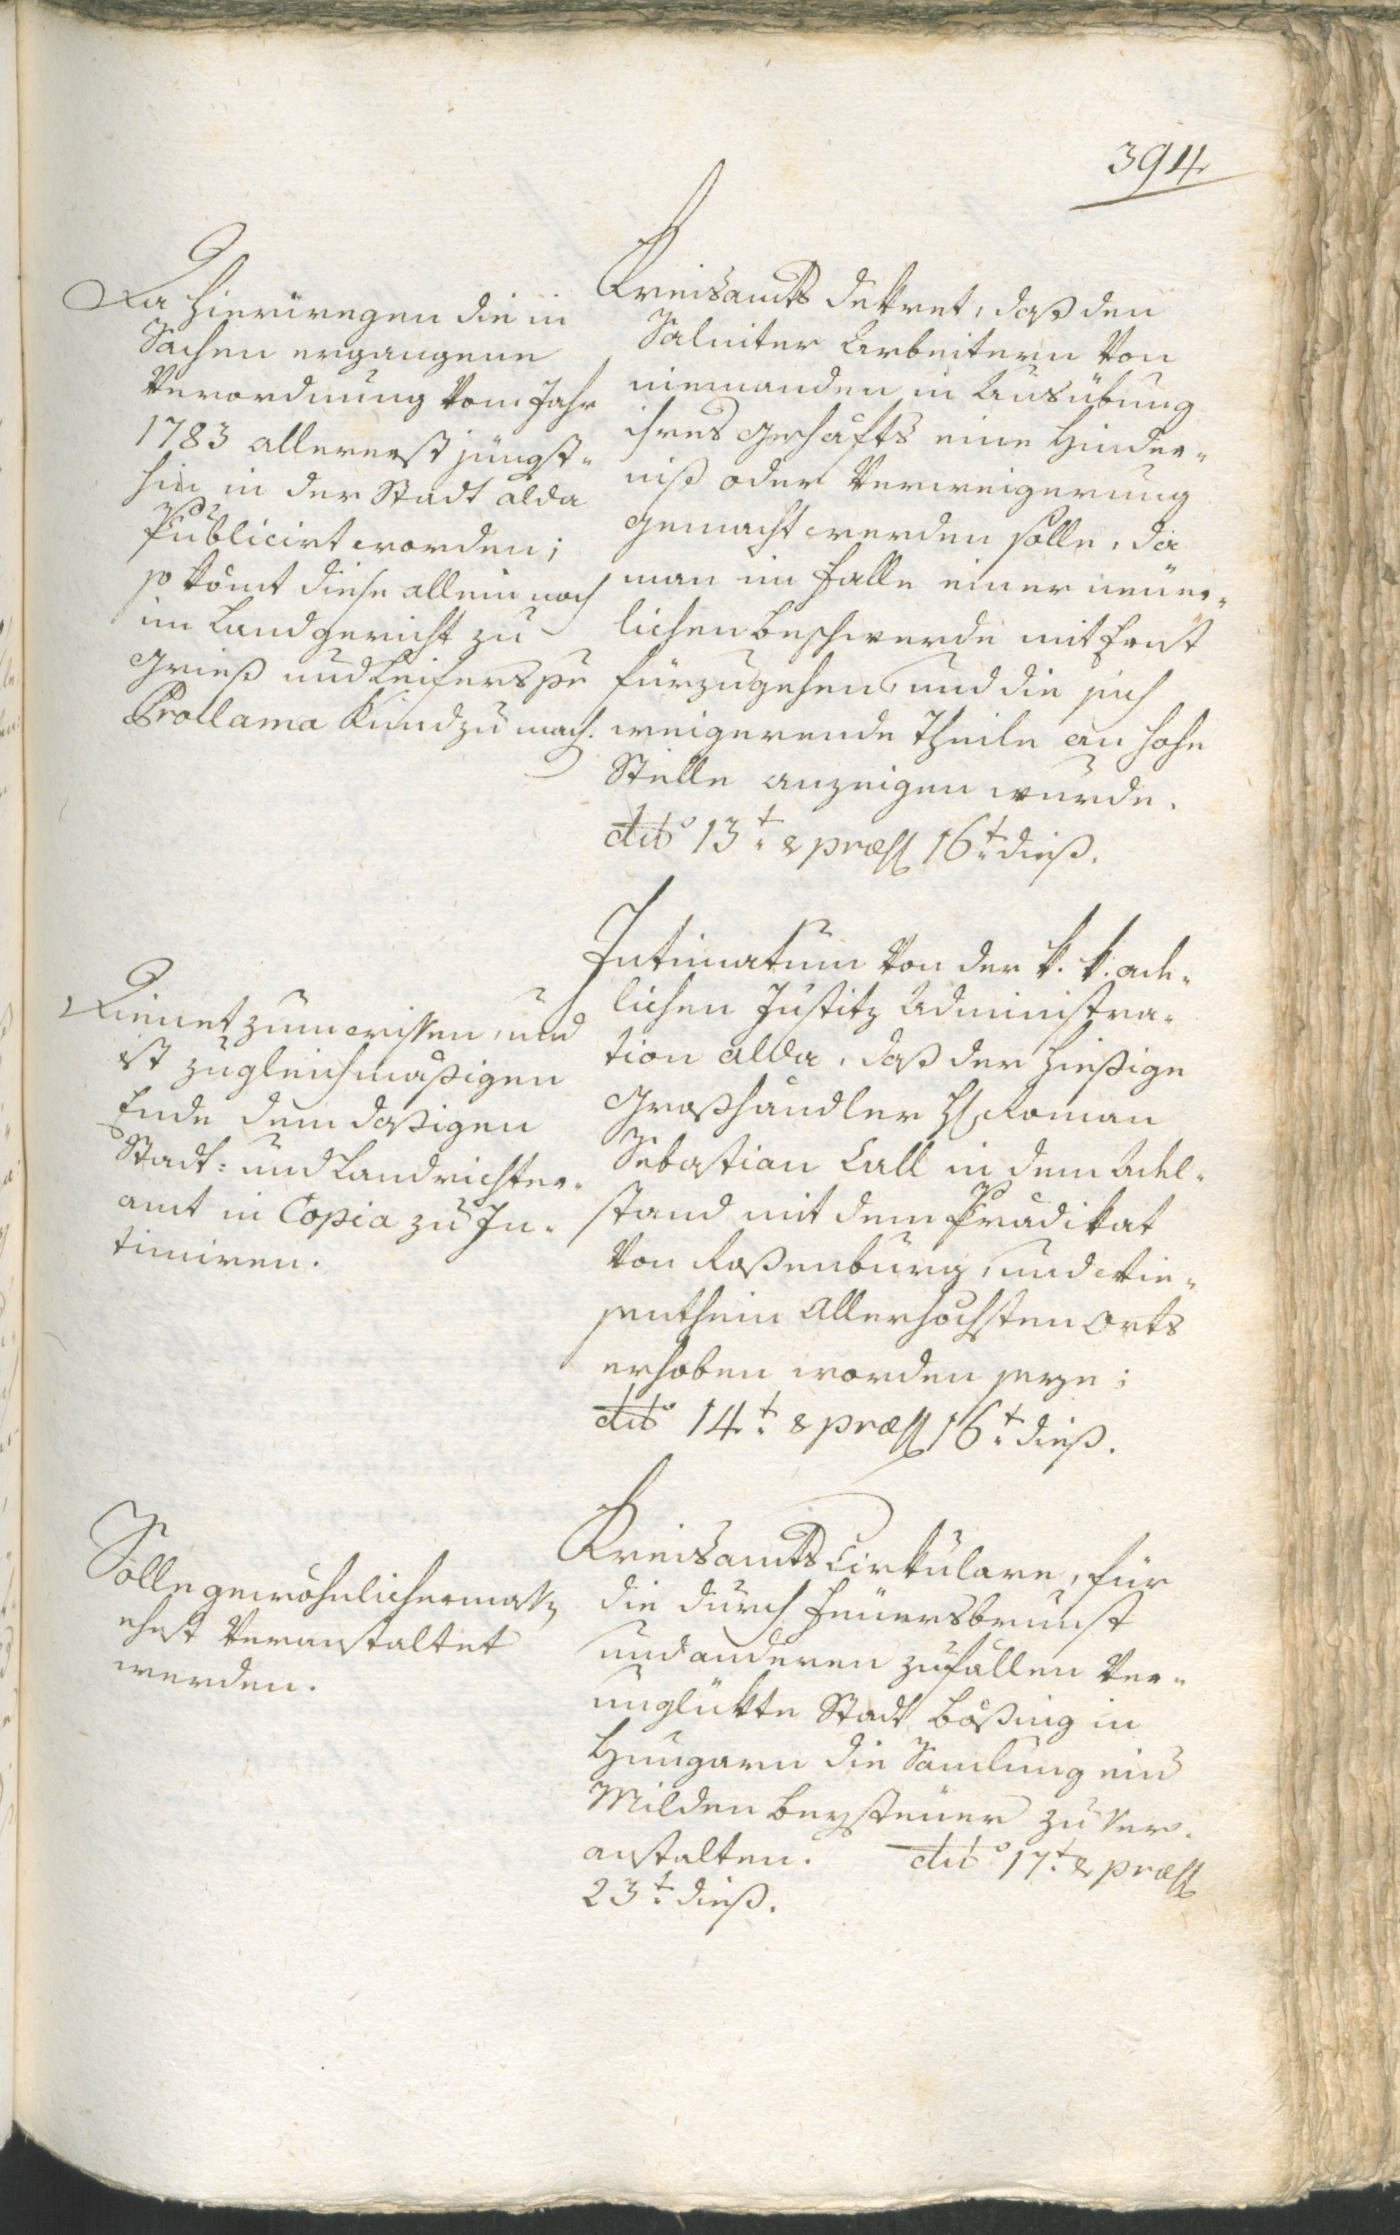 394
Da hierwegen die in
Sachen ergangene
Verordnung vom Jahr
1783 allererst jüngst-
hin in der Stadt alda
Publicirt worden;
so kom̃t diese allein noch
im Landgericht zu
Grieß und Leifers per
Proclama kund zu mach.
Kreisamts dekret, daß den
Salniter Arbeitern von
niemanden in Ausübung
ihres Geschäfts eine Hinder-
niß oder Verweigerung
gemacht werden solle, da
man im Falle einer neuer-
lichen Beschwerde mit Ernst
fürzugehen, und die sich
weigerende Theile an hohe
Stelle anzeigen wurde.
dtō 13t & præs 16t dieß.
Dienet zum wissen, und
ist zu gleichmäßigen
Ende dem dasigen
Stadt- und Landrichter-
amt in Copia zu In-
timiren.
Intimatum von der k. k. ade-
lichen Justitz Administra-
tion alda, daß der hießige
Großhändler H Roman
Sebastian Call in dem Adel-
stand mit dem Prädikat
von Roßenburg, und Wie-
senthein Allerhöchsten Orts
erhoben worden seye;
dtō 14t & præs 16t dieß.
Solle gewöhnlichermaßen
ehest veranstaltet
werden.
Kreisamts Cirkulare, für
die durch Feuersbrunst
und anderen zufällen ver-
unglükte Stadt Bößing in
Hungarn die Samlung eine
Milden Beysteuer zu ver-
anstalten. dtō 17t & præs
23t dieß.